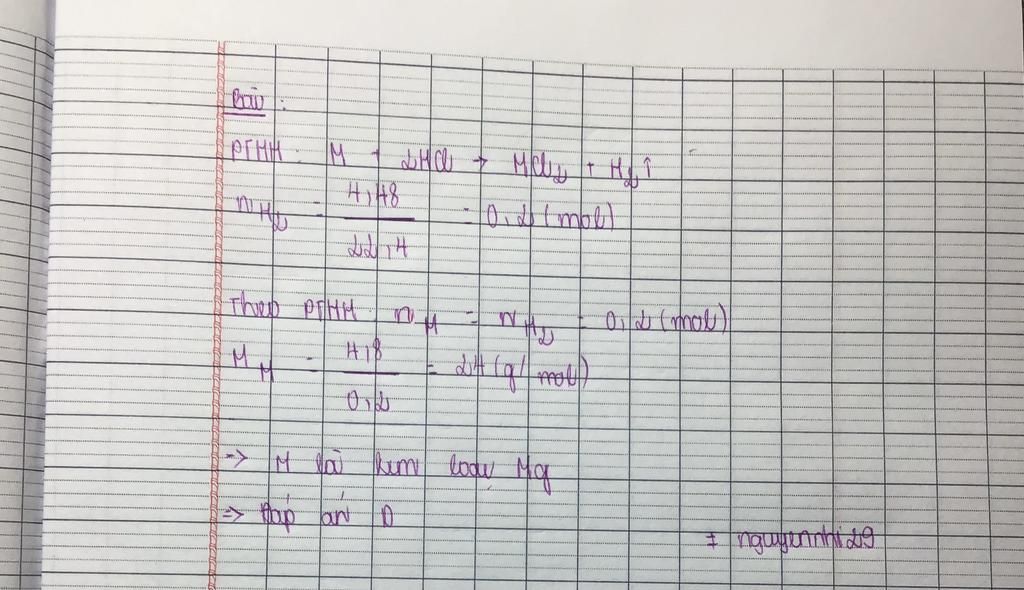 Bài:
PTHH: M + 2HCl → MCl₂ + H₂↑
n H₂ = 4,48 / 22,4 = 0,2 (mol)
Theo PTHH: n M = n H₂ = 0,2 (mol)
M M = 4,8 / 0,2 = 24 (g/mol)
=> M là kim loại Mg
=> Đáp án D
# nguyennhi29